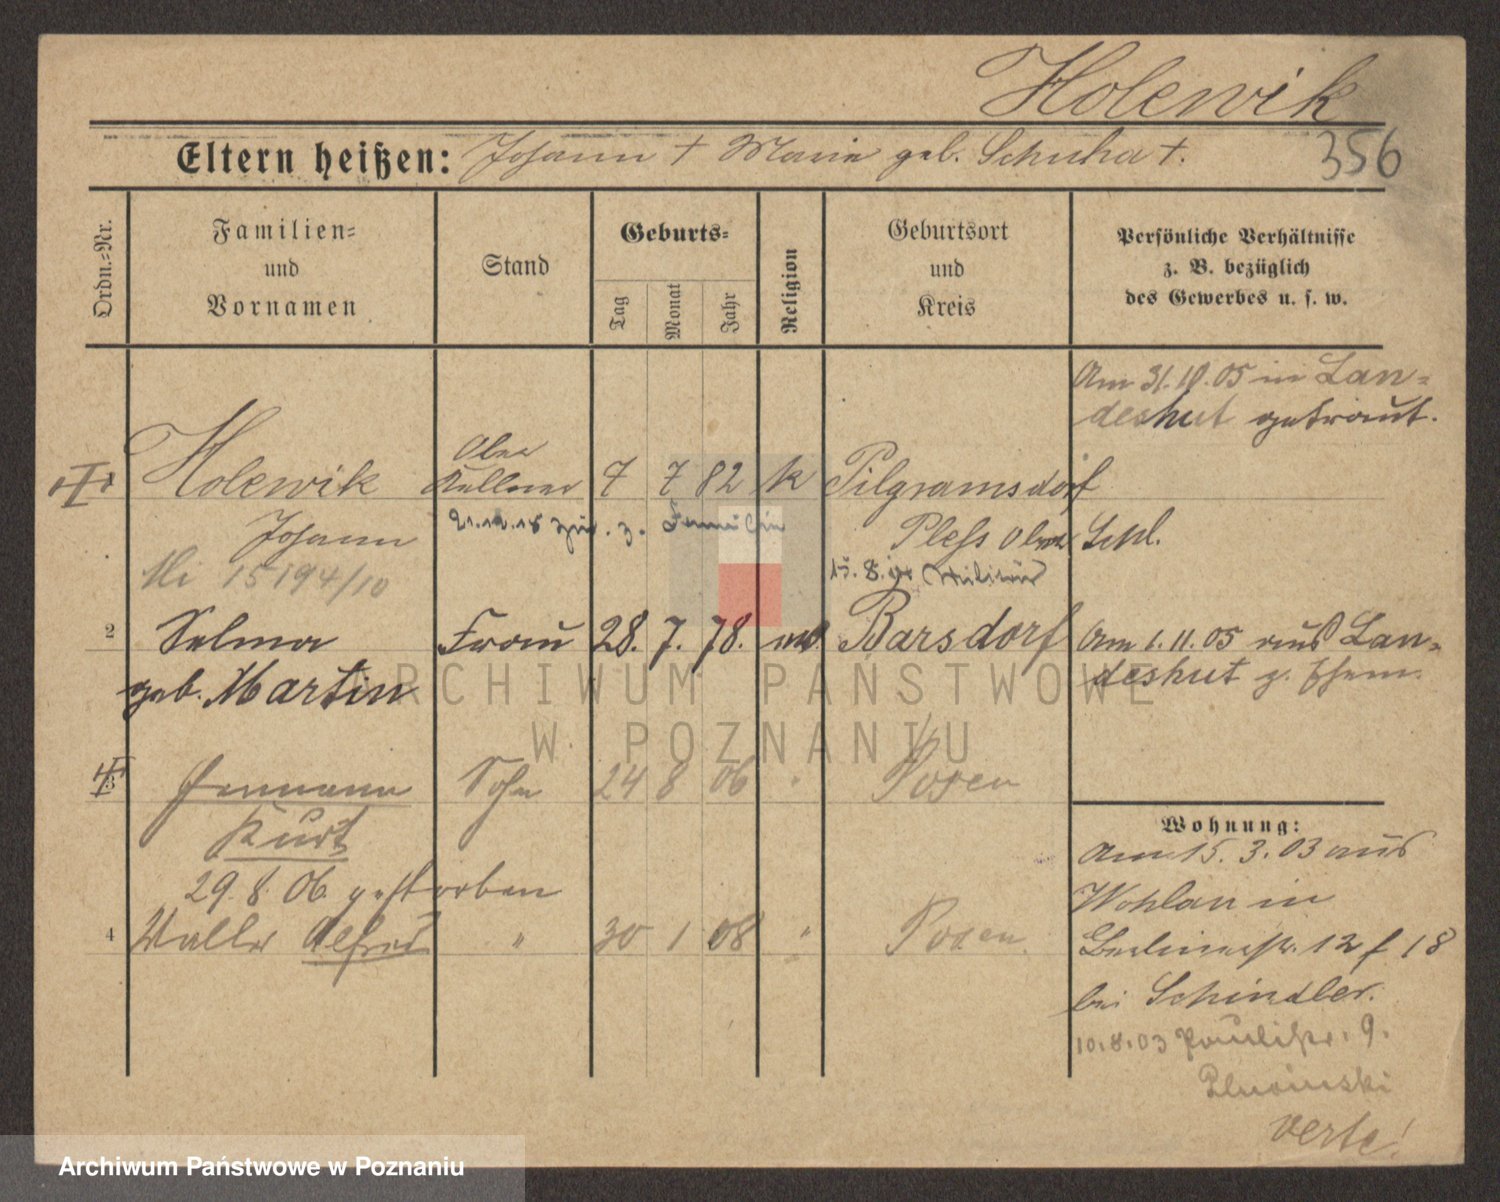 Holewik
Eltern heißen: Johann † Marie geb. Schuha †.
356
Ordn.=Nr.
Familien=
und
Vornamen
Stand
Geburts=
Tag
Monat
Jahr
Religion
Geburtsort
und
Kreis
Persönliche Verhältnisse
z. B. bezüglich
des Gewerbes u. s. w.
Am 31.10.05 in Lan=
deshut getraut.
Holewik
Johann
Ober
Kellner
7 7 82 k
Pilgramsdorf
Pless Ober Schl.
21.12.15 z. Familie
15.8. Militär
15194/10
2 Selma
geb. Martin
Frau 28. 7. 78. Barsdorf
Am 1.11.05 aus Lan=
deshut z. Ehem.
3 Hermann
Kurt
Sohn 24 8 06 Posen
29.8.06 gestorben
4 Walter Alfred " 30 1 08 " Posen
Wohnung:
Am 15.3.03 aus
Wohlau in
Berlinerstr. 12 f 18
bei Schindler.
10.8.03 Paulistr. 9.
verte!
ARCHIWUM PAŃSTWOWE
W POZNANIU
Archiwum Państwowe w Poznaniu